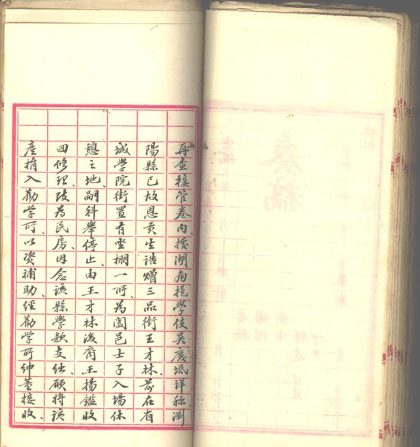 再查接管卷内接湖南提學使吳慶坻詳稱瀏
陽縣已故恩貢生誥贈三品銜王才林前在省
城學院街置有坐棚一所為闔邑士子入場休
憩之地嗣科舉停止由王才林後裔王揚鑑收
回修理改為民房因念該縣學款支絀願將該
產捐入勸學所以資補助經勸學所紳董接收